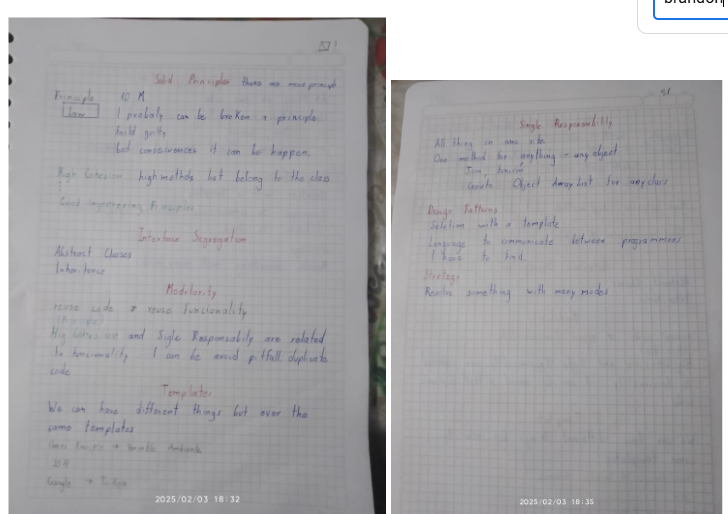 brandon
Solid Principles there are more principle
Principle 10 M
Law I probaly can be broken a principle.
but consecuences it can be happen.
High Cohesion high methods but belong to the class
Good Engineering Principles
Interface Segregation
Abstract Classes
Inheritance
Modularity
reuse code reuse funcionality
Hig Cohesion and Sigle Responsabily are related
to funcionality I can be avoid pitfall duplicate
code
Templates
We can have different things but over the
same templates
Variable Ambiente
Google →
2025/02/03 18:32
51
Single Responsibility
All thing in one site
One method for anything - any object
Create Object Array List for any class
Design Patterns
Solution with a template
Language to communicate between programmers
I have to find.
Strategy
Resolve something with many modes
2025/02/03 18:35